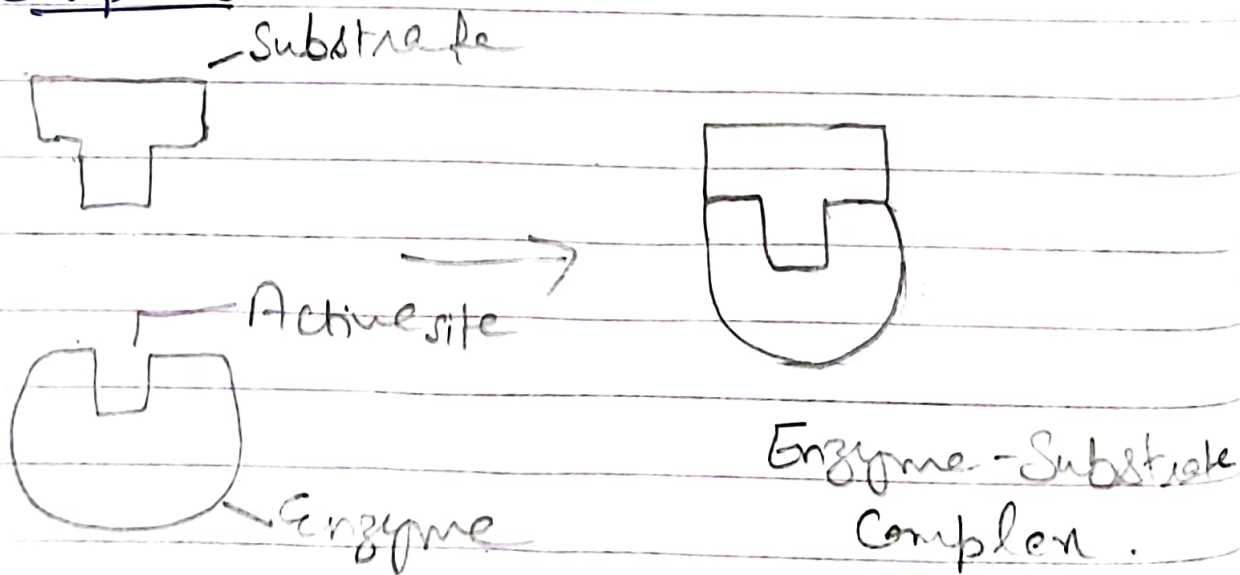 Substrate
Active site
Enzyme
Enzyme - Substrate
Complex.